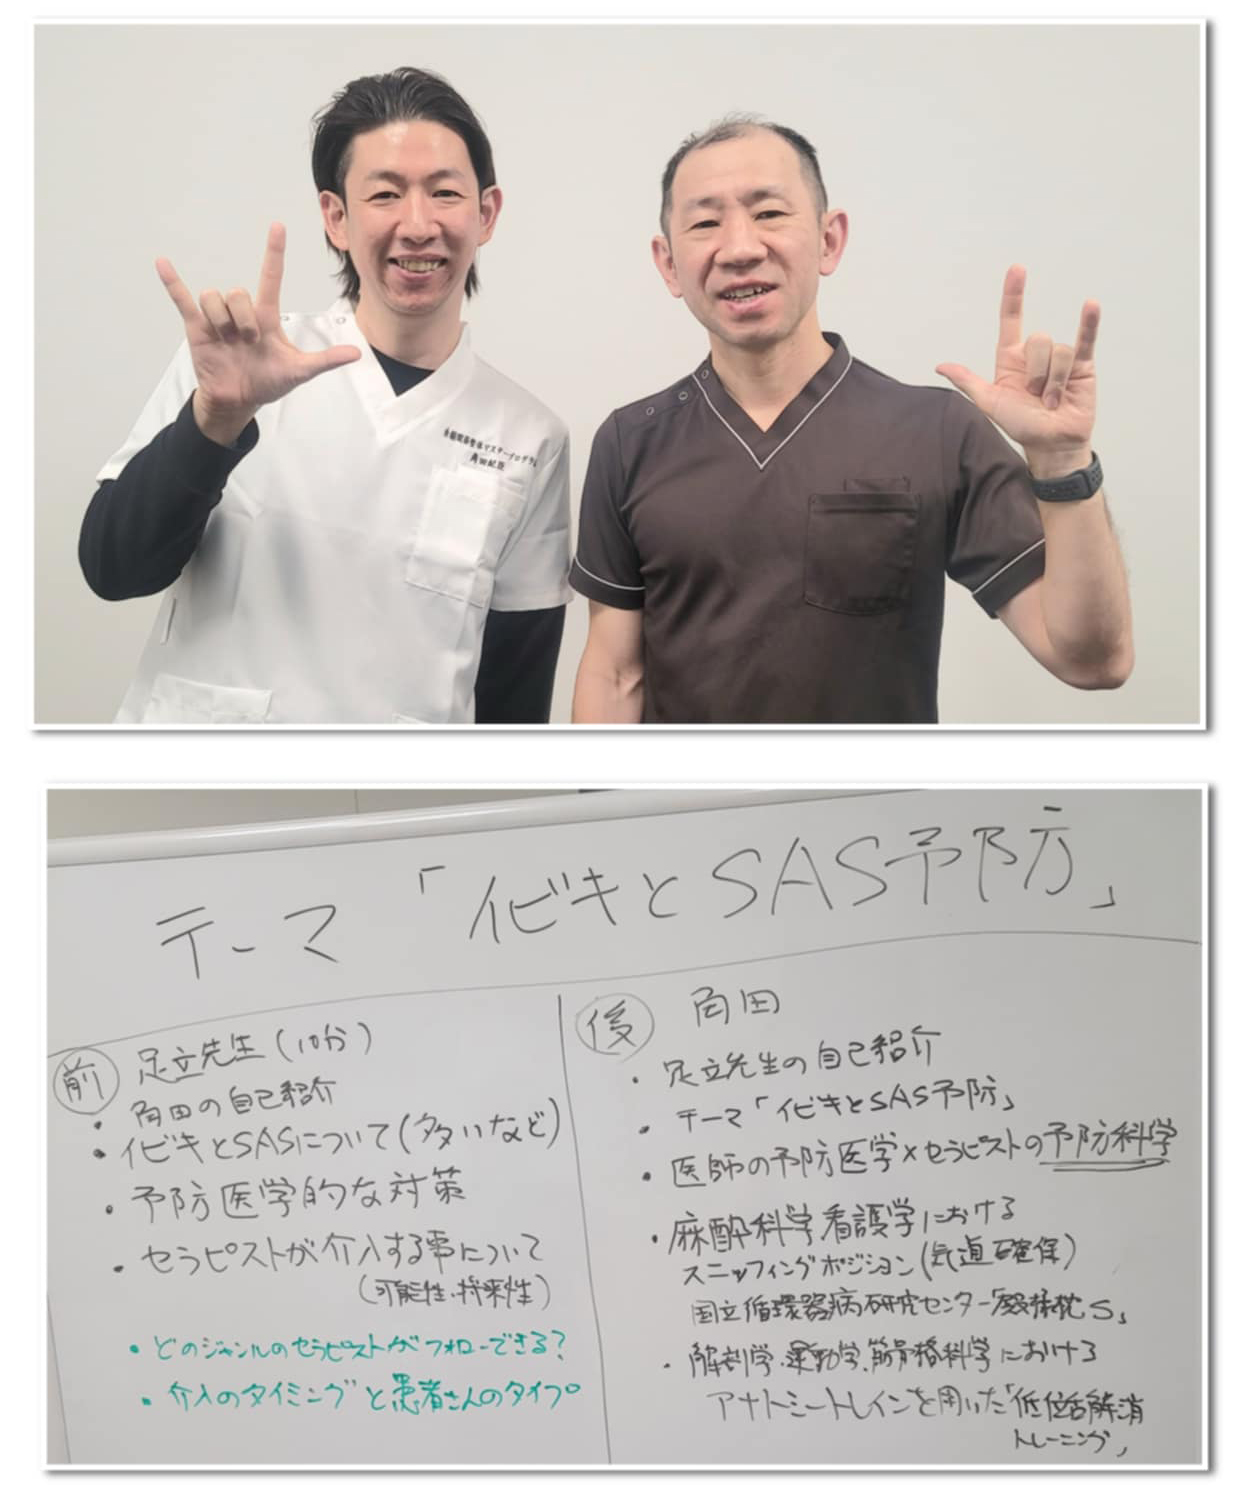 角田紀臣
テーマ「イビキとSAS予防」
前 足立先生(10分)
・角田の自己紹介
・イビキとSASについて(多いなど)
・予防医学的な対策
・セラピストが介入する事について
(可能性・将来性)
・どのジャンルのセラピストがフォローできる?
・介入のタイミングと患者さんのタイプ
後 角田
・足立先生の自己紹介
・テーマ「イビキとSAS予防」
・医師の予防医学×セラピストの予防科学
・麻酔科学、看護学における
スニッフィングポジション(気道確保)
国立循環器病研究センター
・解剖学、運動学、筋骨格科学における
アナトミートレインを用いた「低位舌解消
トレーニング」